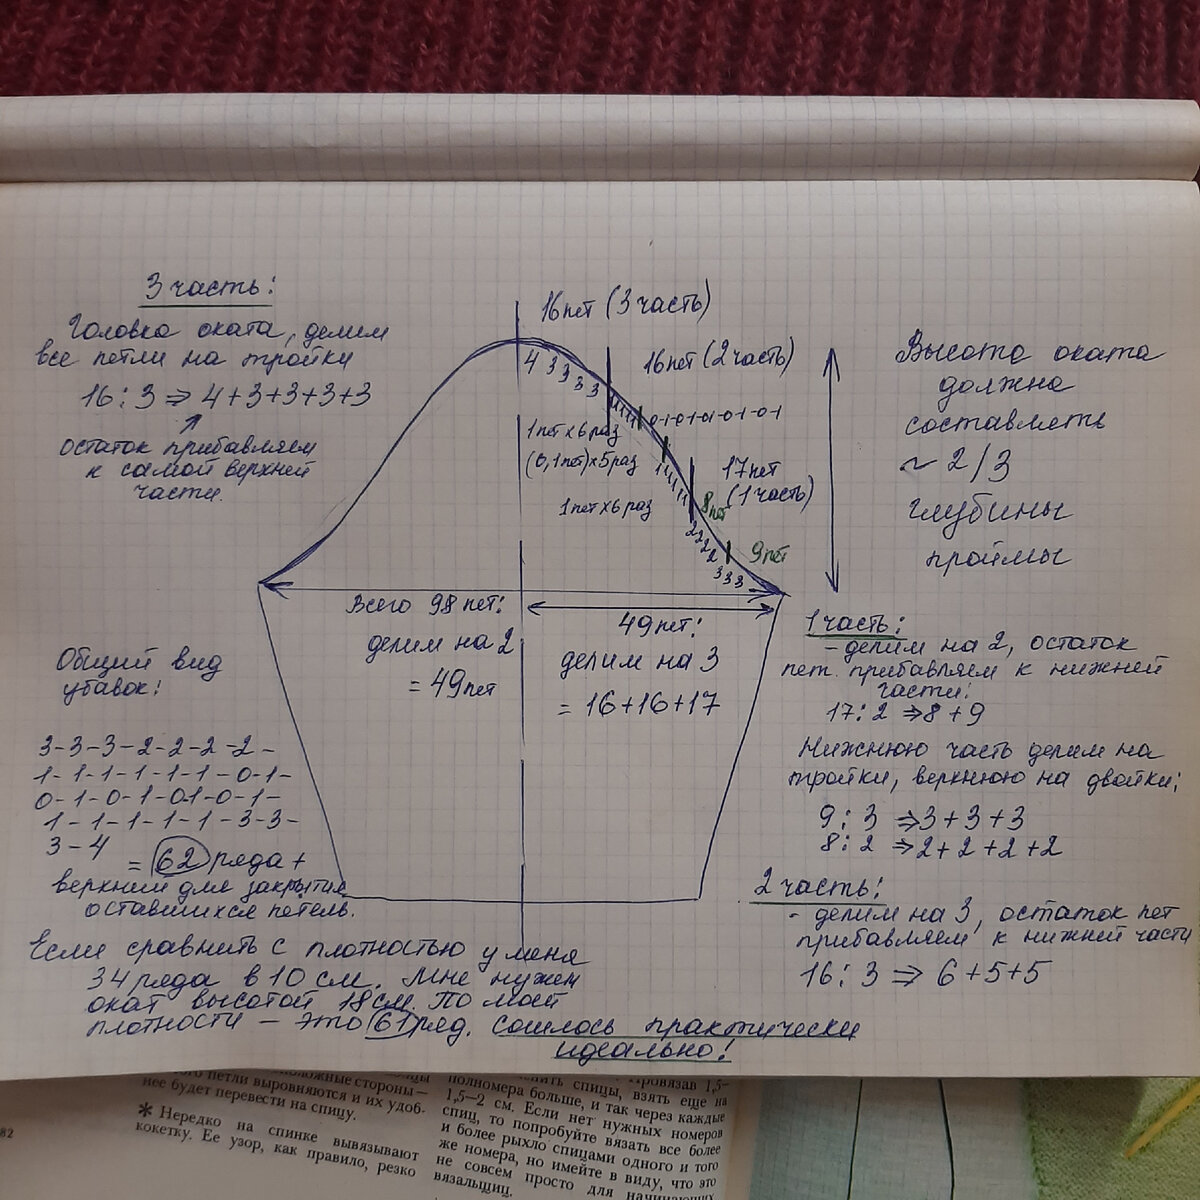 3 часть:
Головка оката, делим
все петли на тройки
16 : 3 ⇒ 4+3+3+3+3
остаток прибавляем
к самой верхней
части.
16 пет (3 часть)
16 пет (2 часть)
4 3 3 3 3
1 1 1 1 1
0-1-0-1-01-0-1-0-1
1 пет х 6 раз
(0,1 пет) х 5 раз
1 пет х 6 раз
17 пет
(1 часть)
8 пет
2 2 2 2
9 пет
3 3 3
Высота оката
должна
составлять
~ 2/3
глубины
проймы
Всего 98 пет:
делим на 2
= 49 пет
49 пет:
делим на 3
= 16+16+17
1 часть:
- делим на 2, остаток
пет. прибавляем к нижней
части:
17 : 2 ⇒ 8 + 9
Нижнюю часть делим на
тройки, верхнюю на двойки:
9 : 3 ⇒ 3+3+3
8 : 2 ⇒ 2+2+2+2
2 часть:
- делим на 3, остаток пет
прибавляем к нижней части
16 : 3 ⇒ 6+5+5
Общий вид
убавок:
3-3-3-2-2-2-2-
1-1-1-1-1-1-0-1-
0-1-0-1-01-0-1-
1-1-1-1-1-3-3-
3-4
= 62 ряда +
верхний для закрытия
оставшихся петель.
Если сравнить с плотностью у меня
34 ряда в 10 см. Мне нужен
окат высотой 18 см. По моей
плотности - это 61 ряд. Сошлось практически
идеально!
стороны-
го петли выровняются и их удоб-
нее будет перевести на спицу.
* Нередко на спинке вывязывают
кокетку. Ее узор, как правило, резко
82
спицы, взять еще на
полномера больше, и так через каждые
1,5—2 см. Если нет нужных номеров
спиц, то попробуйте вязать все более
и более рыхло спицами одного и того
же номера, но имейте в виду, что это
не совсем просто для начинающих
вязальщиц.